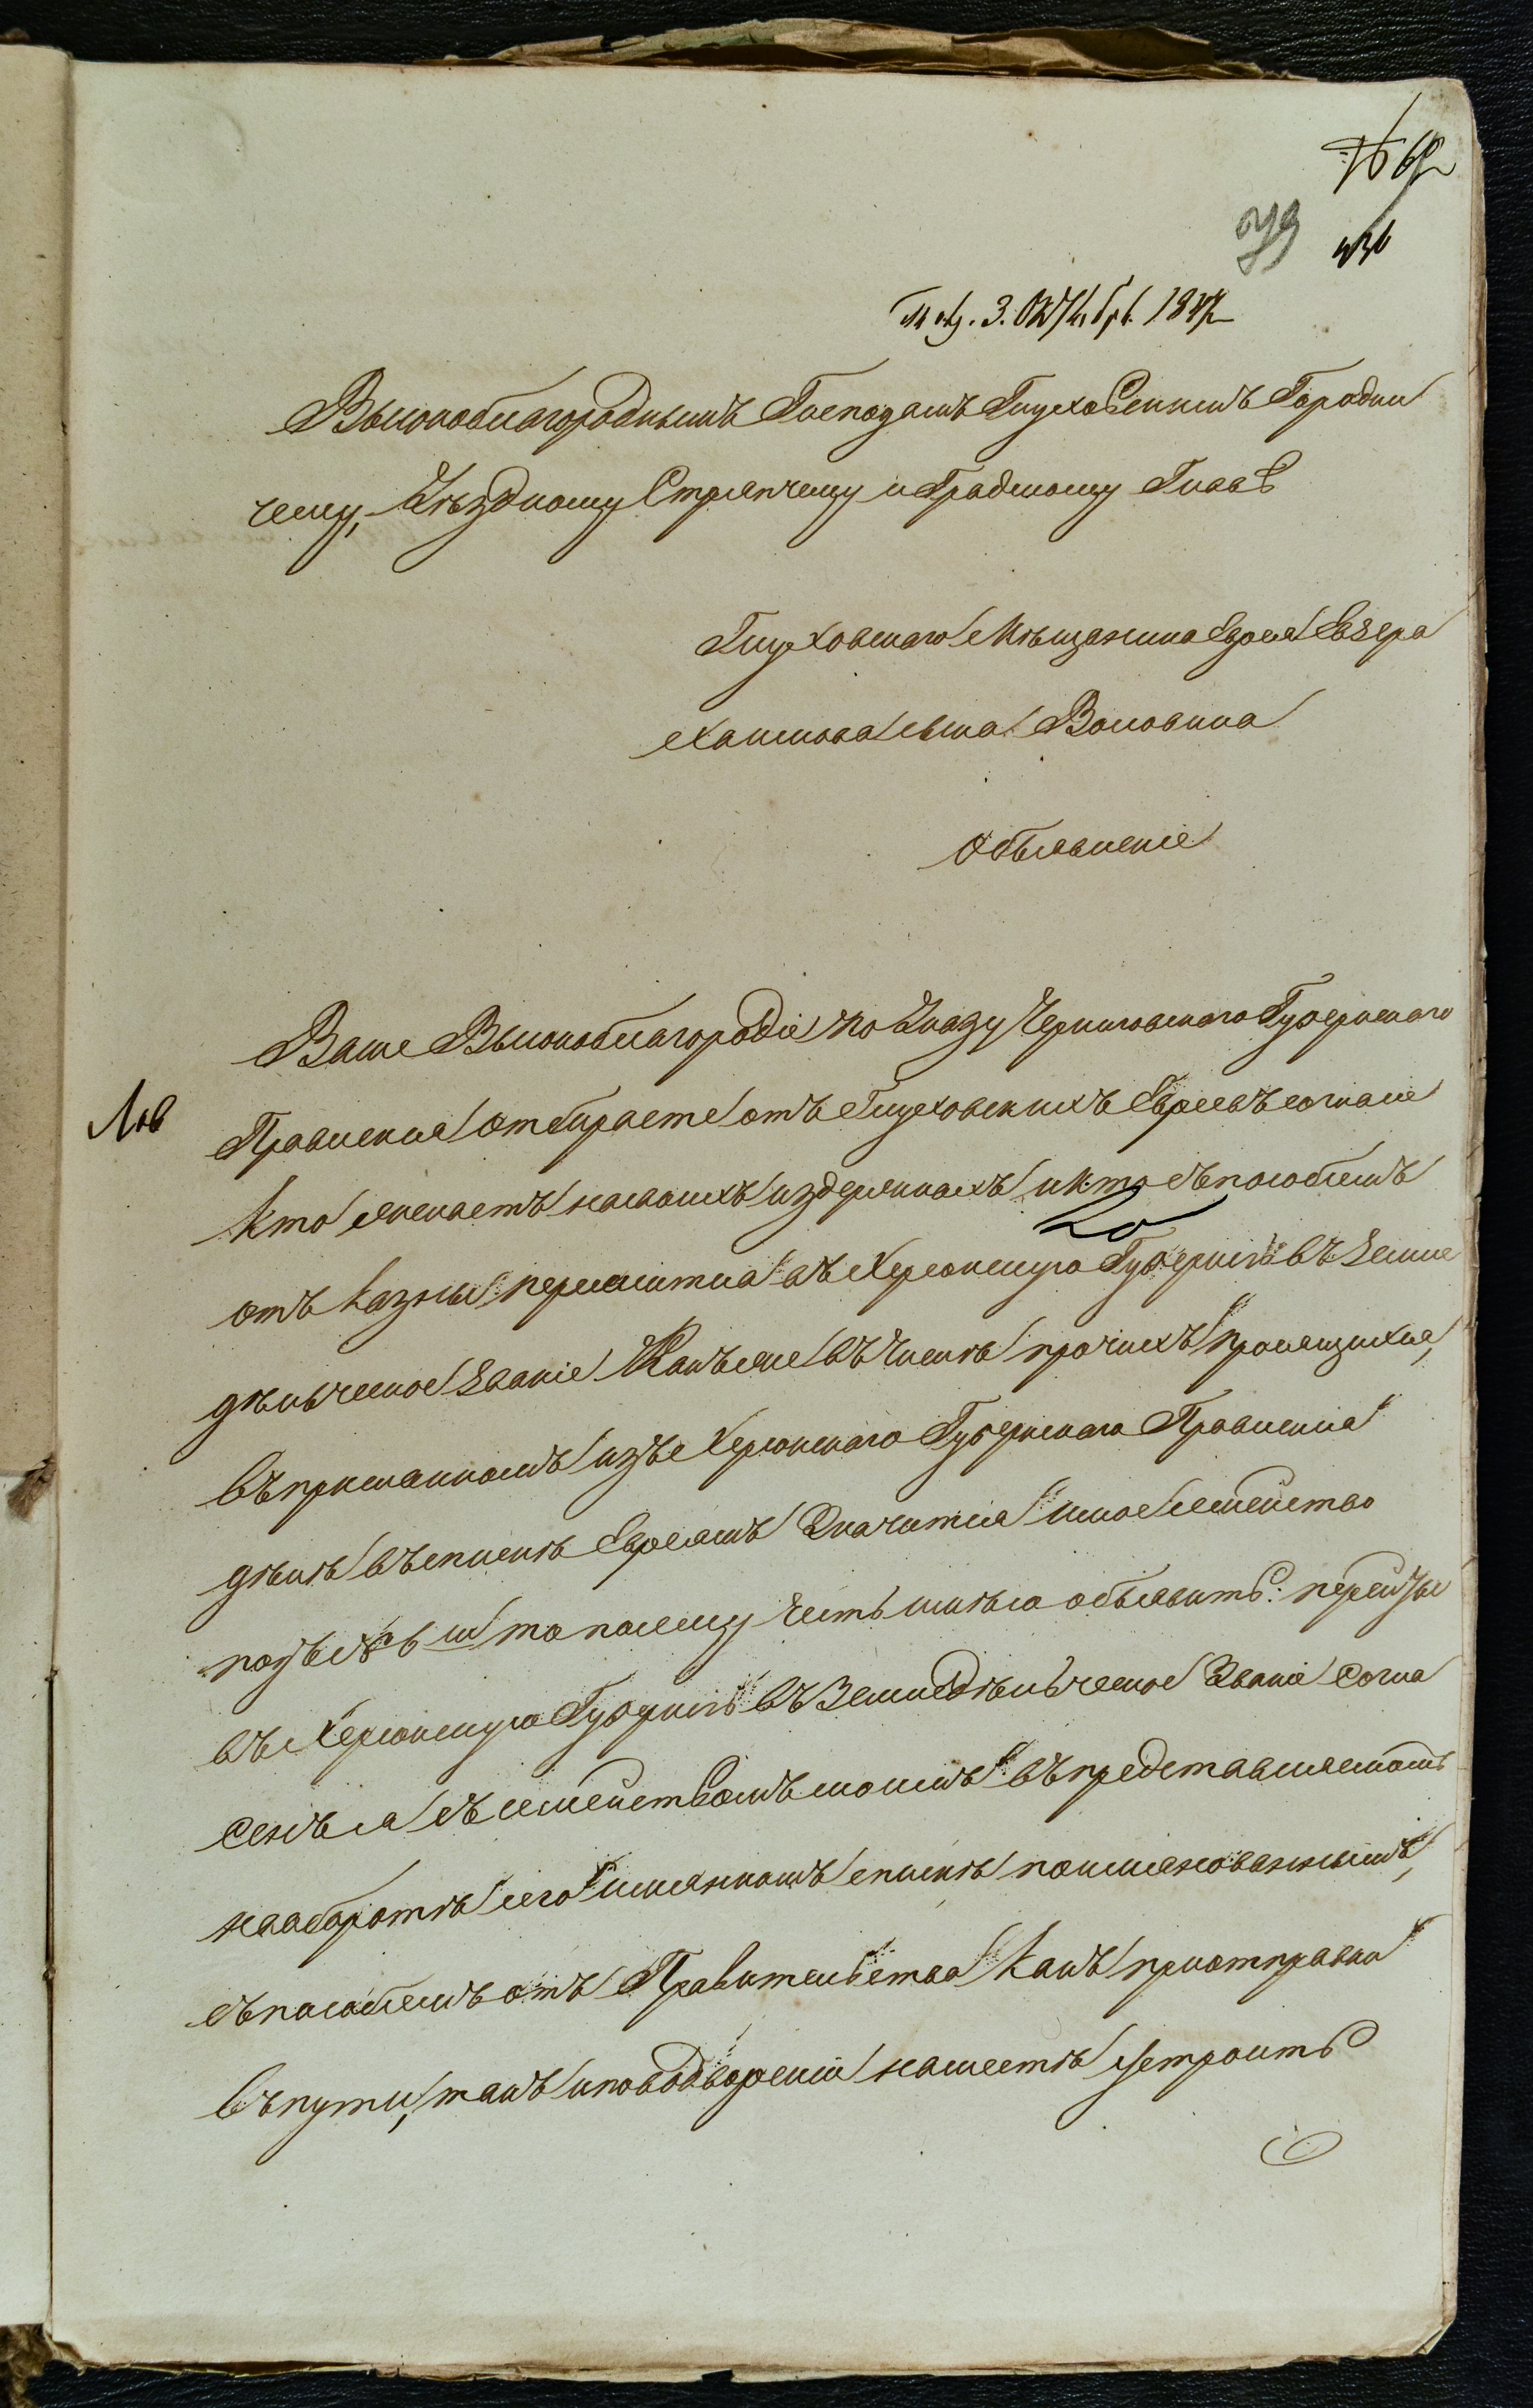 79
3. Октября 184
Высокоблагороднымъ Господамъ Глуховскимъ Городни
чему, Уѣздному Стряпчему и Градскому Главѣ
Глуховскаго Мѣщанина Еврея Евзера
Хаимова сына Воловика
Объявленіе
Ваше Высокоблагородіе по Указу Черниговскаго Губернскаго
Правленія отбираете отъ Глуховскихъ Евреевъ согласіе
кто желаетъ на своихъ издержкахъ и кто съ пособіемъ
20
отъ казны переселится въ Херсонскую Губернію въ Земле
дѣльческое званіе Какъ же въ числѣ прочихъ просящихся,
въ присланномъ изъ Херсонскаго Губернскаго Правленія
дѣлѣ въ спискѣ Евреямъ Значится и мое семейство
подъ № 6 м то посему честь имѣю объявить: перейтье
въ Херсонскую Губернію въ Земледѣльческое Званіе согла
сенъ я съ семействомъ моимъ въ представляемомъ
на оборотѣ сего именномъ спискѣ поименованнымъ,
съ пособіемъ отъ Правительства какъ при отправки
въ пути, такъ и по водвореніи на мѣстѣ устроить